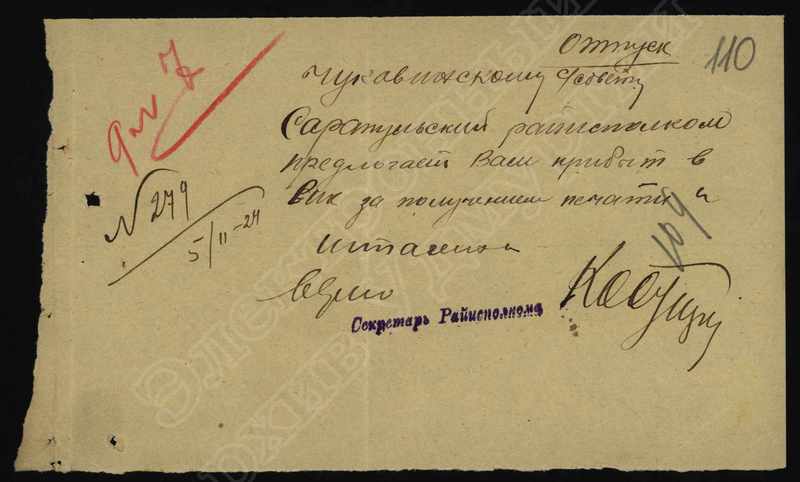 Отпуск
110
Чукавинскому с/совету
Сарапульский райисполком
предлогает Вам прибыт в
Вик за получением печати и
штампа
Верно
Секретарь Райисполкома
N 279
5/II-24
109